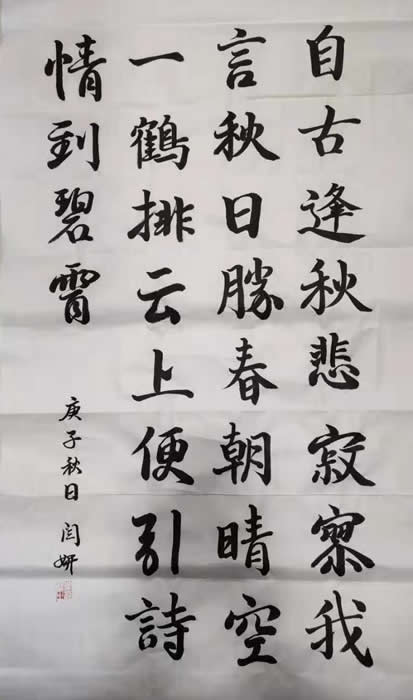 自古逢秋悲寂寥我
言秋日勝春朝晴空
一鶴排云上便引詩
情到碧霄
庚子秋日 闫妍